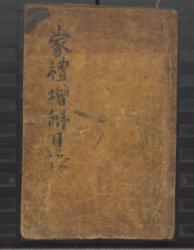 家禮增解目